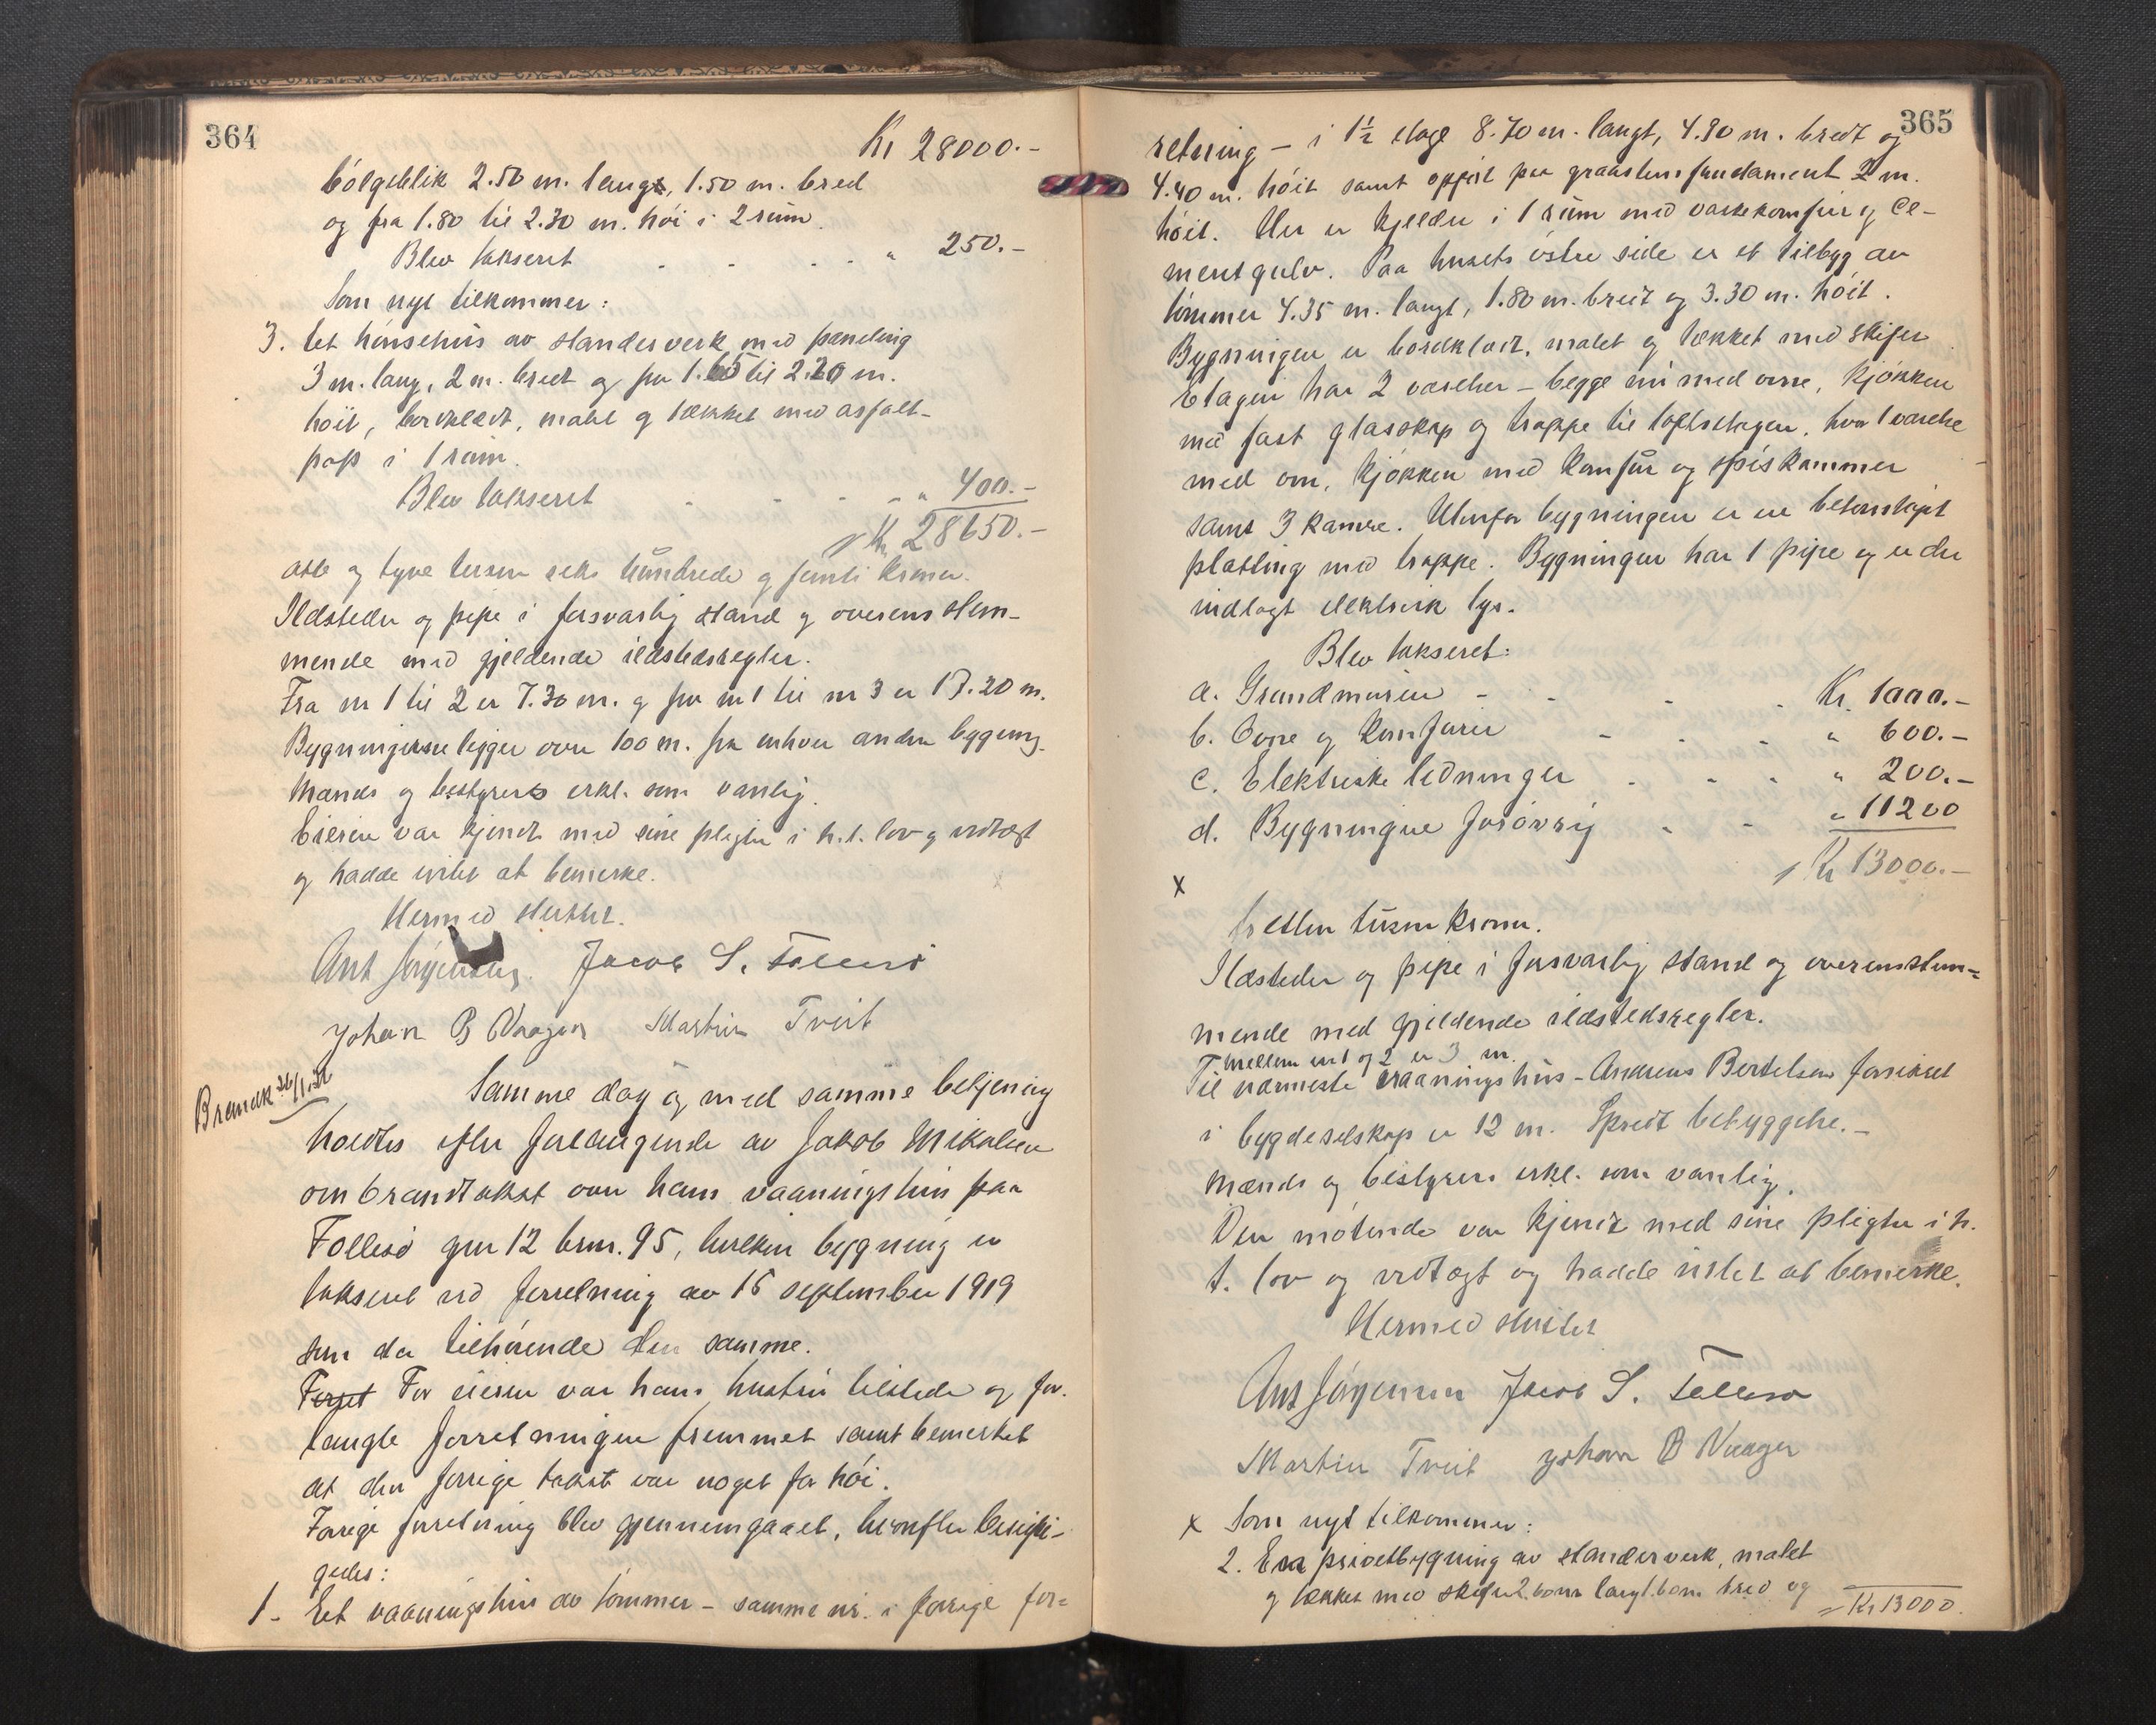 364
Kr 28000.-
bølgeblik 2.50 m. langt, 1.50 m. bred
og fra 1.80 til 2.30 m. høi i 2 rum.
Blev takseret . . . . " 250.-
Som nyt tilkommer:
3. Et hønsehus av standerverk med paneling
3 m. lang, 2 m. bredt og fra 1.65 til 2.20 m.
høit, bordklædt, malet og tækket med asfalt-
pap i 1 rum.
Blev takseret - - - - " 400.-
Kr 28650.-
otte og tyve tusen seks hundrede og femti kroner.
Ildsteder og pipe i forsvarlig stand og overensstem-
mende med gjeldende ildstedsregler.
Fra nr 1 til 2 er 7.30 m. og fra nr 1 til nr 3 er 17.20 m.
Bygningerne ligger over 100 m. fra enhver anden bygning.
Mænds og bestyrers erkl. som vanlig.
Eieren var kjendt med sine pligter i h.t. lov og vedtægt
og hadde intet at bemerke.
Hermed sluttet.
Ant Jørgensen. Jacob S. Follesø
Johan B Vaagen Martin Tveit
Brandk 26/1.31
Samme dag og med samme betjening
holdtes efter forlangende av Jakob Mikalsen
om brandtakst over hans vaaningshus paa
Follesø gnr 12 brnr. 95, hvilken bygning er
takseret ved forretning av 15 september 1919
som da tilhørende den samme.
Forret For eieren var hans hustru tilstede og for-
langte forretningen fremmet samt bemerket
at den forrige takst var noget for høi.
Forrige forretning blev gjennemgaaet, hvorefter besigti-
gedes:
1. Et vaaningshus av tømmer - samme nr. i forrige for-
365
retning - i 1½ etage 8.70 m. langt, 4.90 m. bredt og
4.40 m. høit samt opført paa graastensfundament 2 m.
høit. Her er kjelder i 1 rum med vaskekomfur og ce-
mentgulv. Paa husets østre side er et tilbyg av
tømmer 4.35 m. langt, 1.80 m. bredt og 3.30 m. høit.
Bygningen er bordklædt, malet og tækket med skifer
Etagen har 2 værelser - begge nu med ovne, kjøkken
med fast glasskap og trappe til loftsetagen, hvor 1 værelse
med ovn, kjøkken med komfur og spiskammer
samt 3 kamre. Utenfor bygningen er en betonstøpt
platting med trappe. Bygningen har 1 pipe og er der
indlagt elektrisk lys.
Blev takseret:
a. Grundmuren - - - . Kr. 1000.-
b. Ovne og komfurer - - - " 600.-
c. Elektriske ledninger . - - " 200.-
d. Bygningen forøvrig - - " 11200
Kr 13000.-
x
tretten tusen kroner.
Ildsteder og pipe i forsvarlig stand og overensstem-
mende med gjeldende ildstedsregler.
Mellem nr 1 og 2 er 3 m.
Til nærmeste vaaningshus - Andreas Bertelsen forsikret
i bygdeselskap er 12 m. Spredt bebyggelse.-
Mænds og bestyrers erkl. som vanlig.
Den møtende var kjendt med sine pligter i h.
t. lov og vedtægt og hadde intet at bemerke.
Hermed sluttet
Ant Jørgensen Jacob S. Follesø
Martin Tveit Johan B Vaagen
x Som nyt tilkommer:
2. En privetbygning av standerverk, malet
og tækket med skifer 2.60 m langt 1.60 m. bred og
Kr 13000.